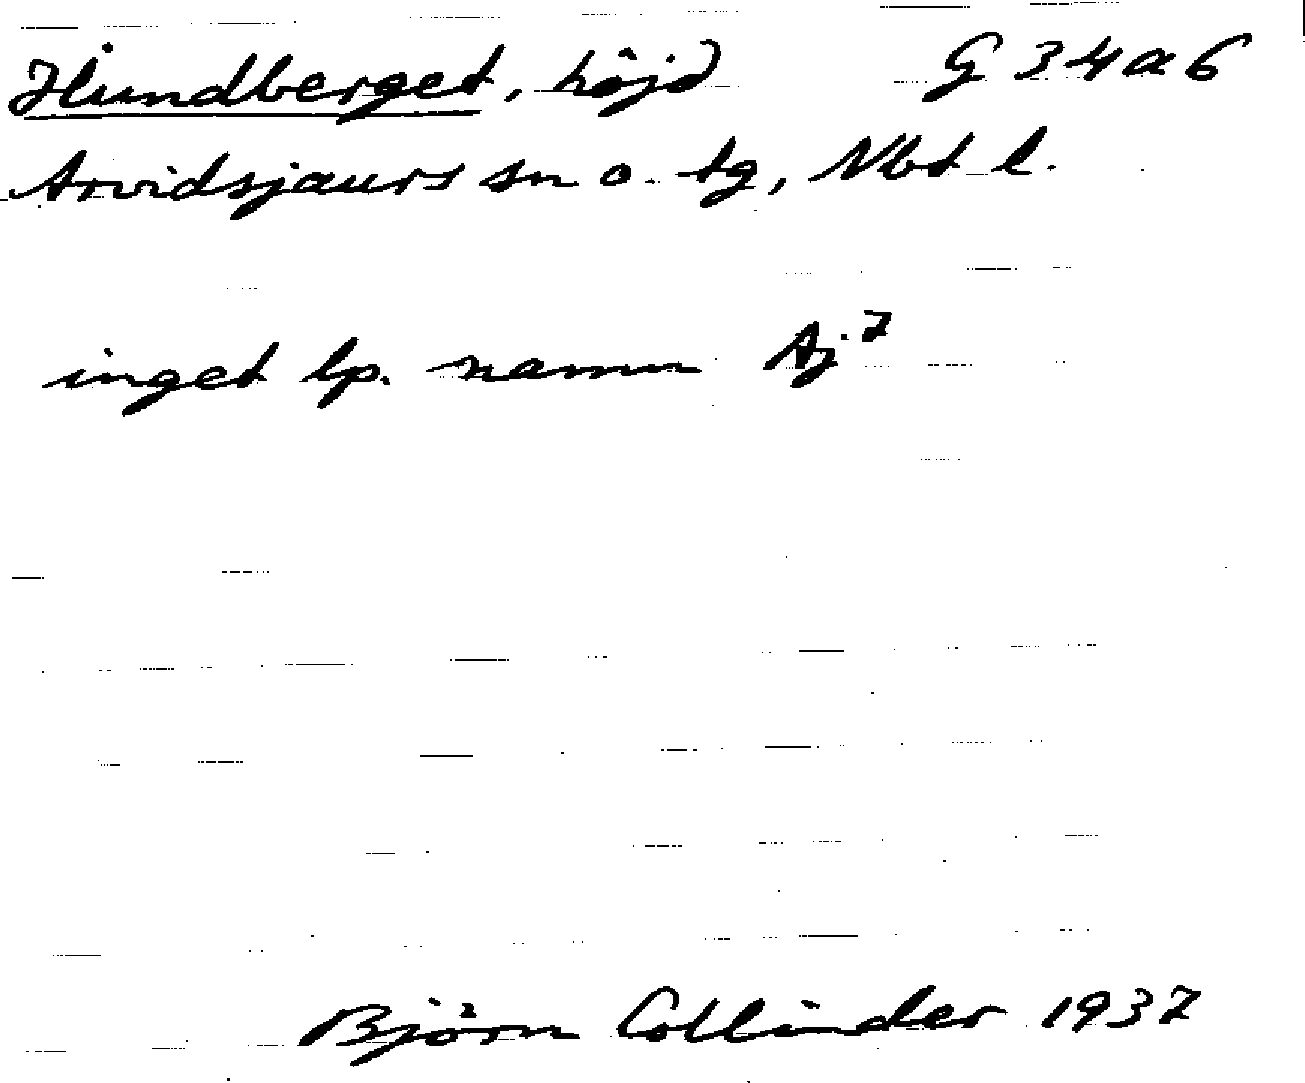 Hundberget, höjd G 34 a 6
Arvidsjaurs sn o. tg, Nbt l.
inget lp. namn Aj.7
Björn Collinder 1937